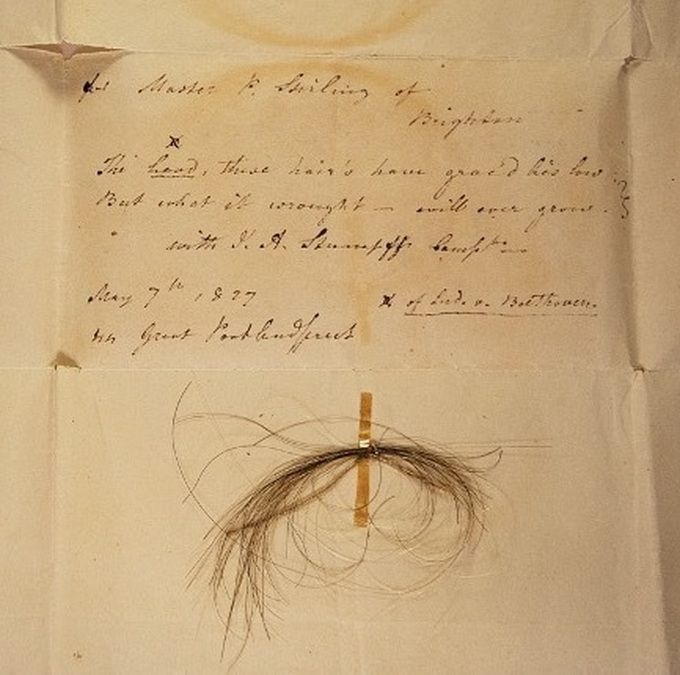 for Master P. Stirling of
Brighton
x
The head, these hair's have grac'd lies low
But what it wrought – will ever grow.
with J. A. Stumpff's Compts
May 7th, 1827
Great Portlandstreet
x of Lud. v. Beethoven.